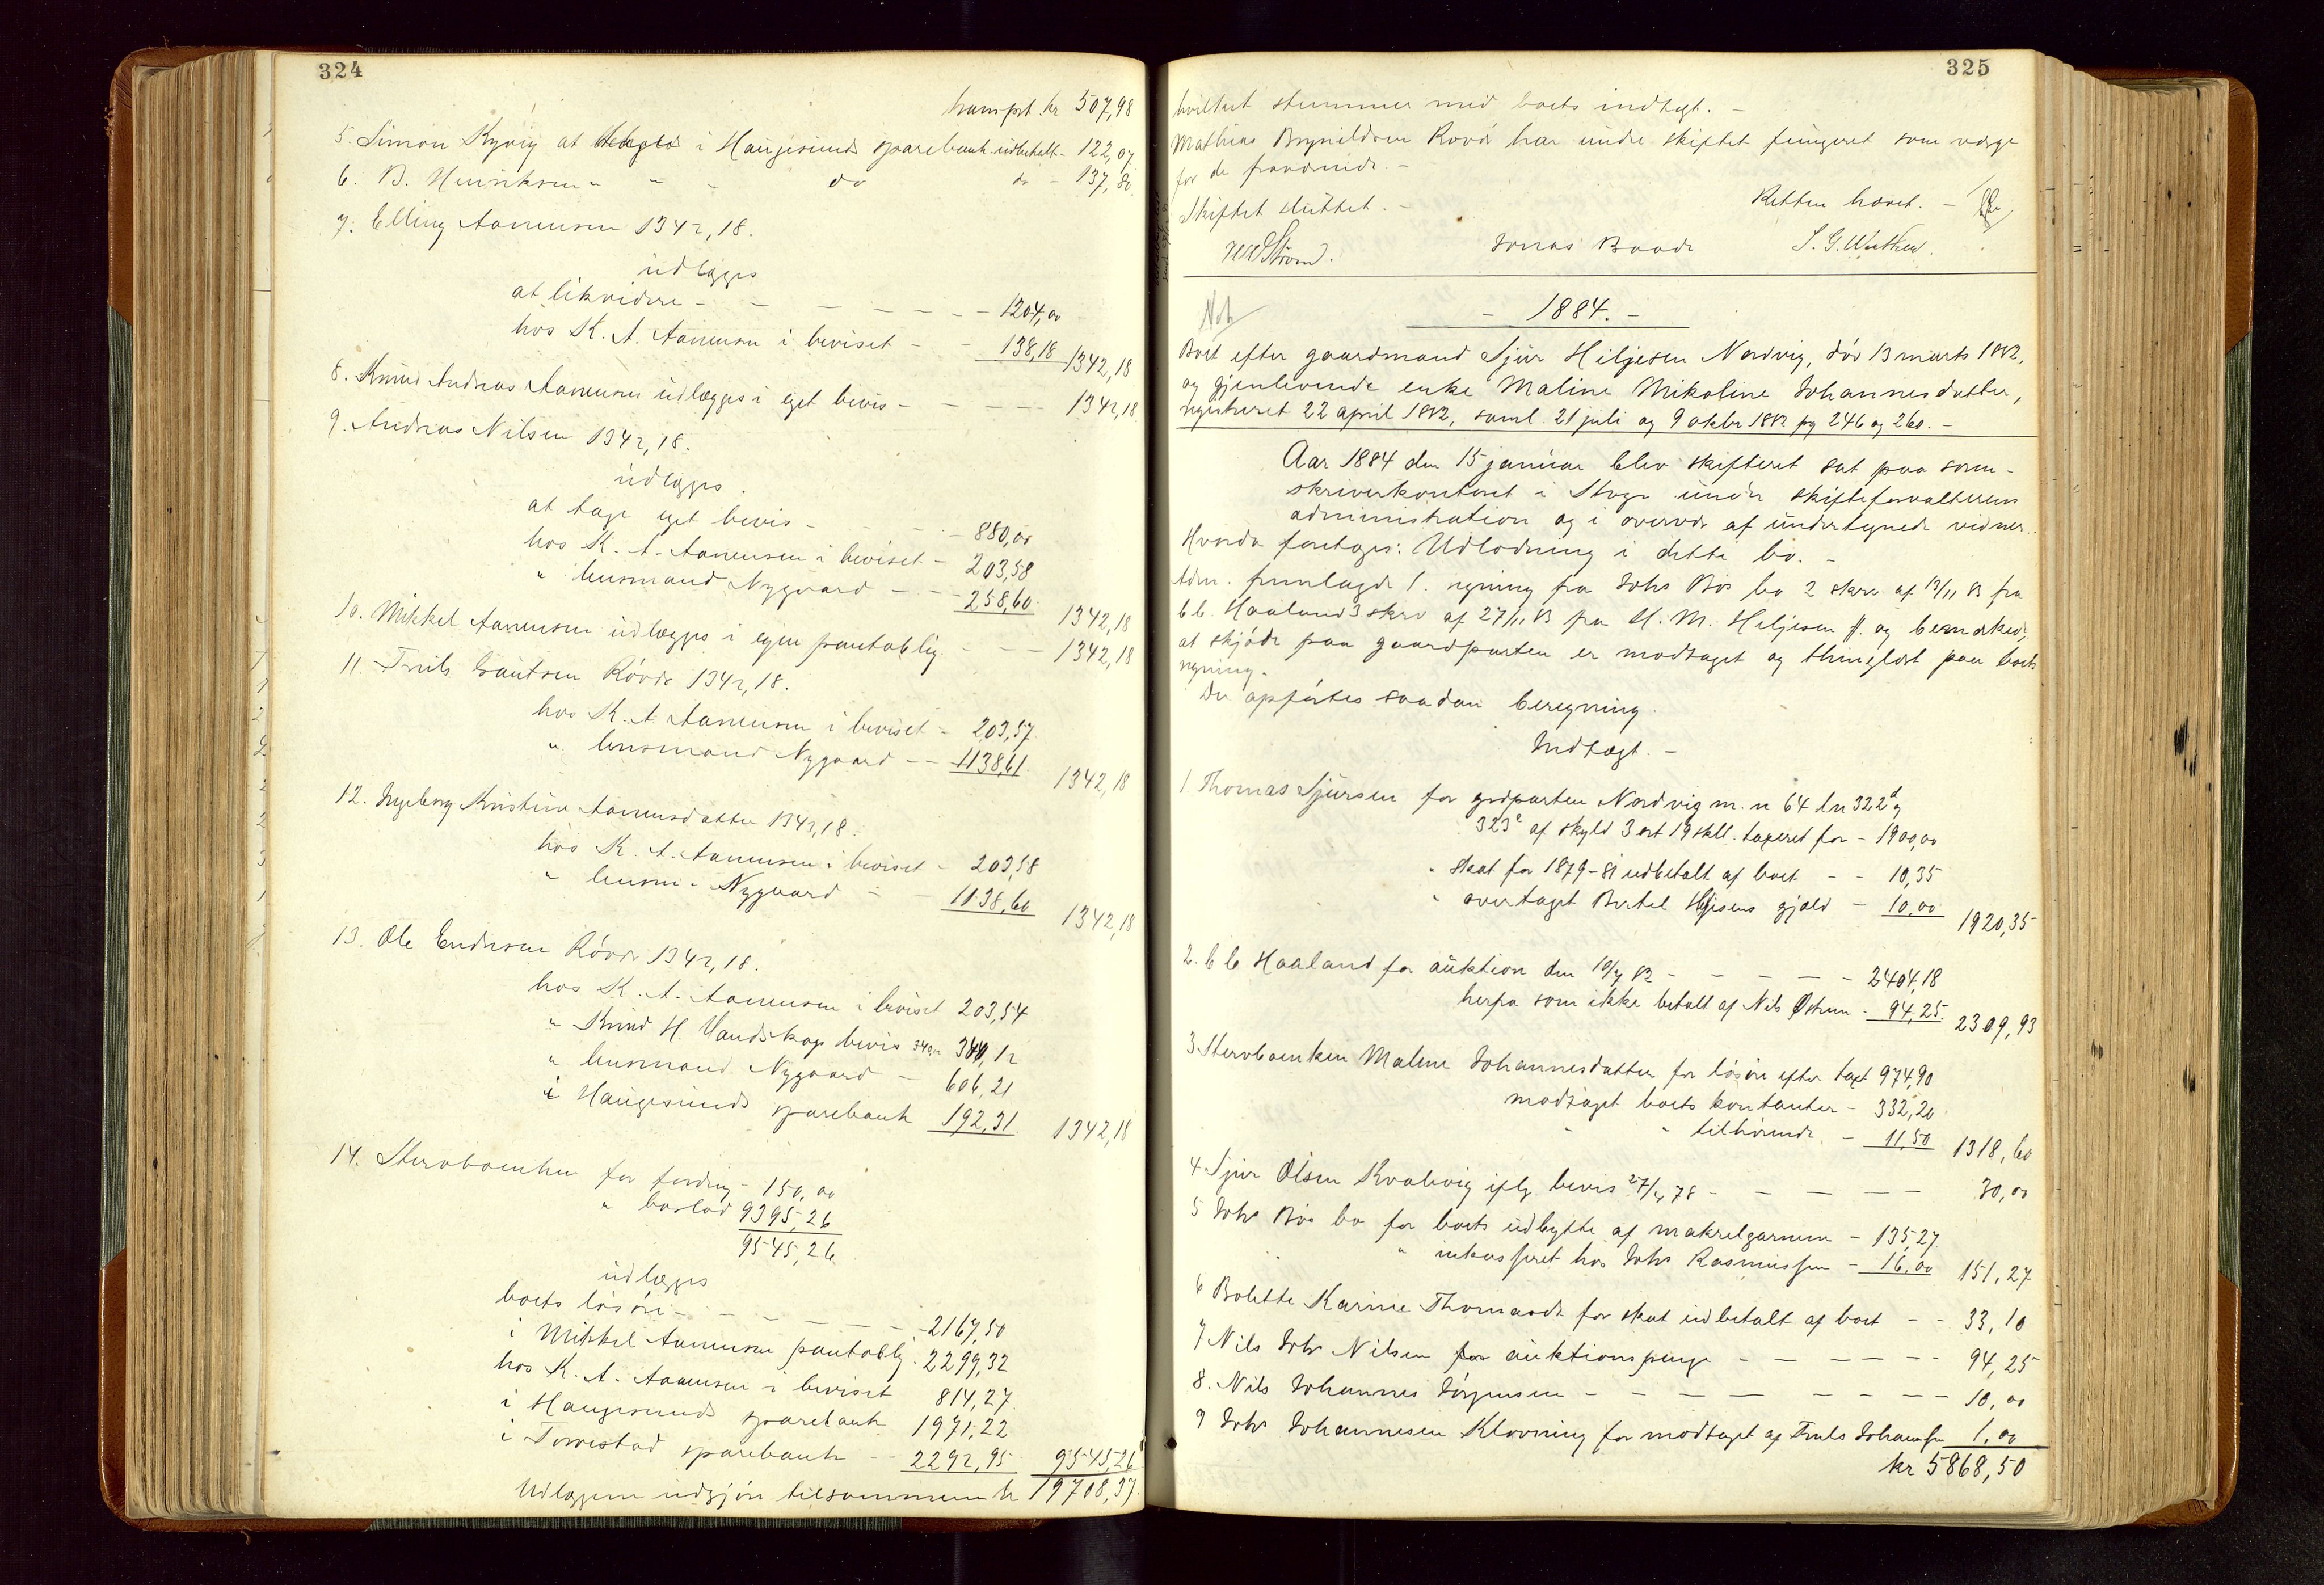 324
transprt. kr 507,98
5. Simon Kyvig at i Haugesunds sparebank udbetalt - 122,07
6. B. Henriksen " " " do do - 137,80
7. Elling Aanensen 1342,18.
udlægges
at likvidere - - - - - - 1204,00
hos K. A. Aanensen i beviset - - 138,18 1342,18
8. Knud Andreas Aanensen udlægges i eget bevis - - - - - 1342,18
9. Andreas Nilsen 1342,18.
udlægges.
at tage eget bevis - - - - 880,00
hos K. A. Aanensen i beviset - 203,58
" lensmand Nygaard - - - 258,60 1342,18
10. Mikkel Aanensen udlægges i egen pantoblig. - - - 1342,18
11. Truls Gautsen Røvde 1342,18.
hos K. A. Aanensen i beviset - 203,57
" lensmand Nygaard - - 1138,61 1342,18
12. Ingeborg Kristine Aanensdatter 1342,18.
hos K. A. Aanensen i beviset - 203,58
" lensm. Nygaard - - 1138,60 1342,18
13. Ole Endresen Røvde 1342,18.
hos K. A. Aanensen i beviset 203,54
" Knud H. Vandskog bevis 340,12
" lensmand Nygaard - 606,21
i Haugesunds sparebank 192,31 1342,18
14. Stervboenken for fordring - 150,00
" boslod 9395,26
9545,26
udlægges
boets løsøre - - - - - - 2167,50
i Mikkel Aanensen pantoblig. 2299,32
hos K. A. Aanensen i beviset 814,27
i Haugesunds sparebank 1971,22
i Torvestad sparebank - - 2292,95 9545,26
Udlæggene udgjør tilsammen kr 19708,37.
325
hvilket stemmer med boets indtægt. -
Mathias Brynildsen Røvde har under skiftet fungeret som værge
for de fraværende. -
Skiftet sluttet. - Retten hævet. -
Jonas Baade S. G. Wathew.
Not
- 1884. -
Boet efter gaardmand Sjur Heljesen Nordvig, død 13 marts 1882,
og gjenlevende enke Maline Mikoline Johannesdatter,
registreret 22 april 1882, saml. 21 juli og 9 oktbr 1882 pg 246 og 260. -
Aar 1884 den 15 januar blev skifteret sat paa soren-
skriverkontoret i Stoge under skifteforvalterens
administration og i overvær af undertegnede vidner.
Hvorda foretages: Udlodning i dette bo. -
Adm. fremlagde 1. regning fra Johs Bøe bo 2 skrv af 12/11 83 fra
C C. Haaland 3 skrv af 27/11 83 fra H. M. Heljesen ff. og bemærked,
at skjøde paa gaardparten er modtaget og thinglæst paa boets
regning.
Der opførtes saadan beregning.
Indtægt. -
1. Thomas Sjursen for grdparten Nordvig m. n 64 ln 322d og
323e af skyld 3 ort 19 skll. taxeret for - 1900,00
" skat for 1879-81 udbetalt af boet - - 10,35
" overtaget Bertel Heljesens gjæld - 10,00 1920,35
2. C C Haaland for auktion den 10/7 82 - - - - - 2404,18
herfra som ikke betalt af Nils Østrem - 94,25 2309,93
3. Stervboenken Maline Johannesdatter for løsøre efter taxt 974,90
modtaget boets kontanter - 332,20
" " tilhørende - 11,50 1318,60
4 Sjur Olsen Kvalevig iflg bevis 27/4 78 - - - - - 30,00
5 Johs Bøe bo for boets udbytte af makrelgarnene - 135,27
" inkasseret hos Johs Rasmussen - 16,00 151,27
6 Bolette Karine Thomasdr for skat udbetalt af boet - - 33,10
7 Nils Johs Nilsen for auktionspenge - - - - - - 94,25
8. Nils Johannes Jørgensen - - - - - - - - 10,00
9 Johs Johannesen Klovning for modtaget af Truls Johansen 1,00
kr 5868,50